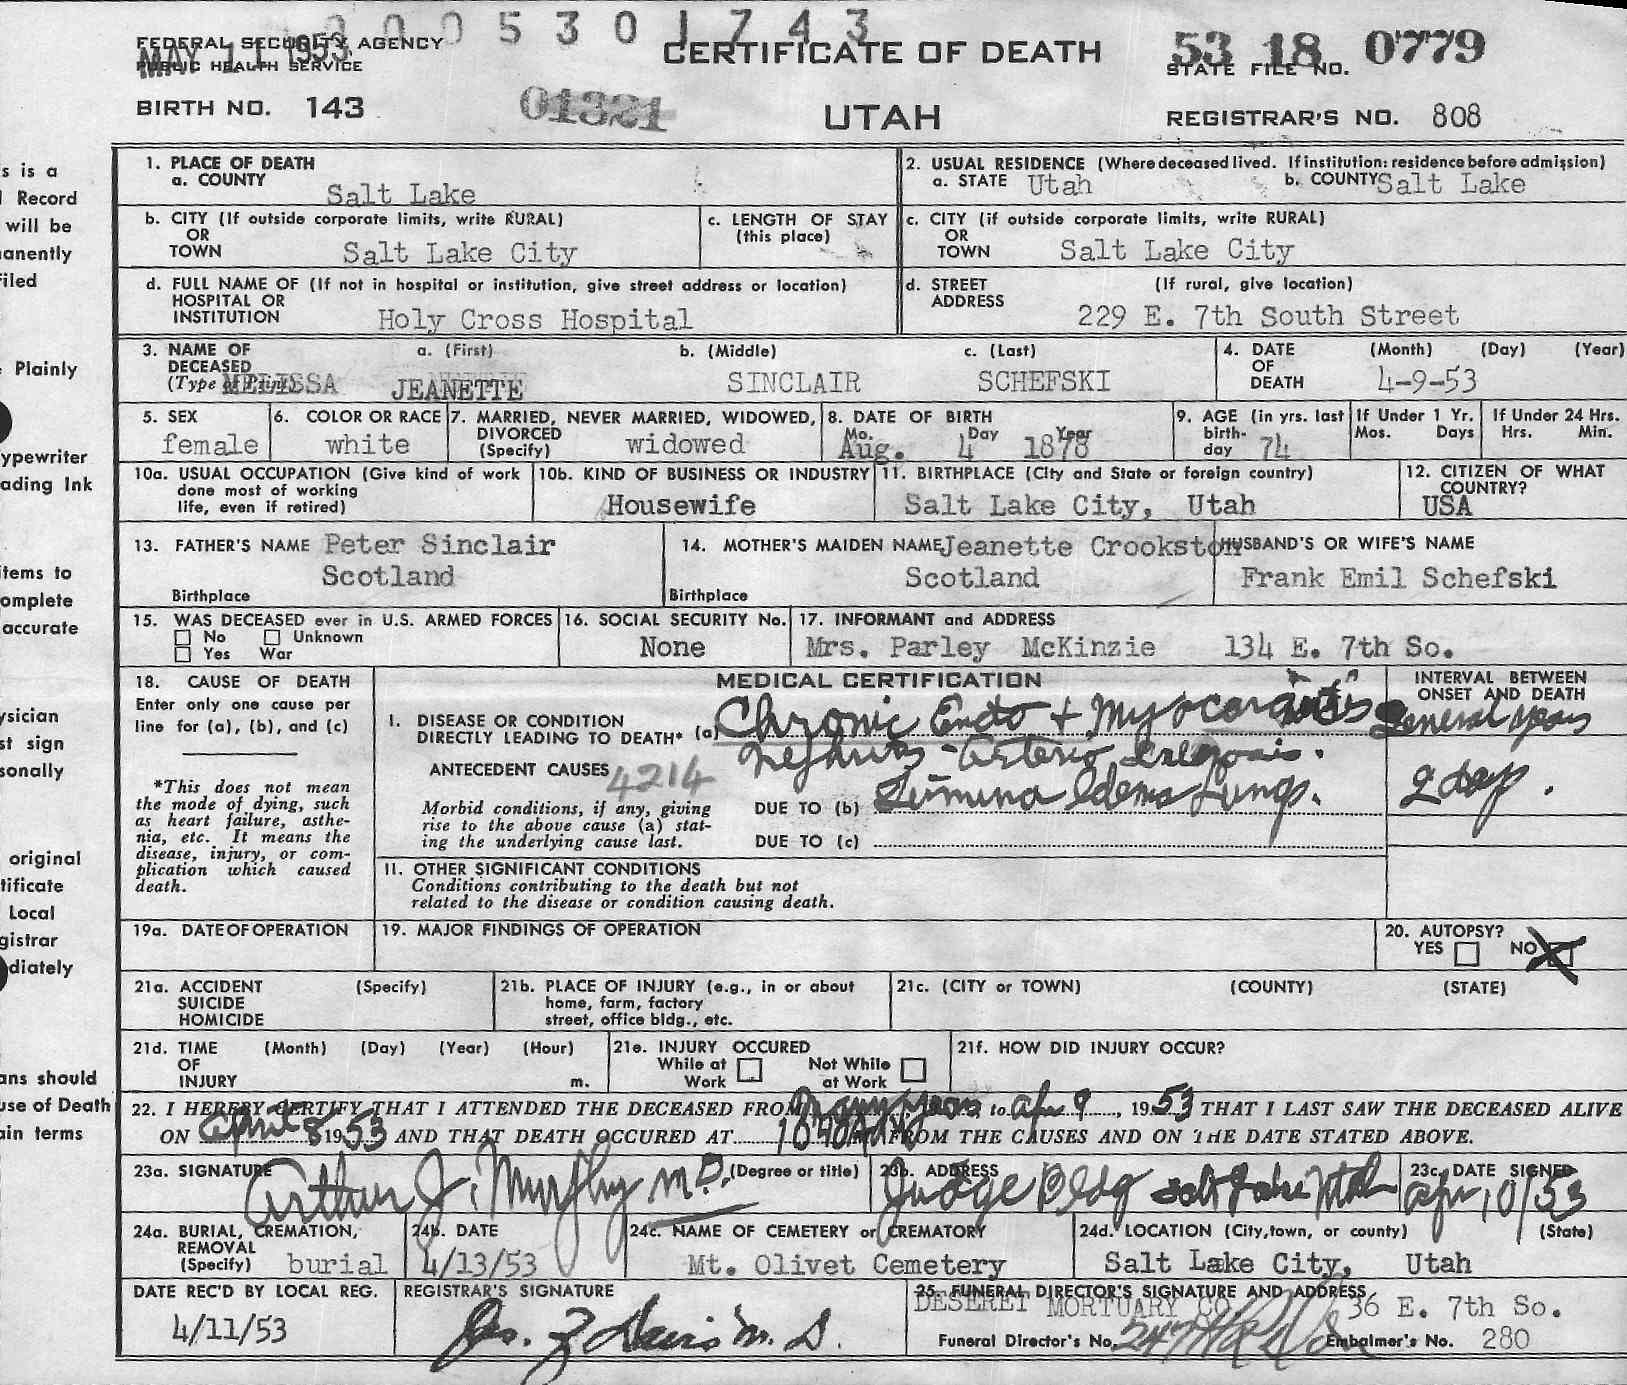 0005301743
FEDERAL SECURITY AGENCY
MAY 11 1953
PUBLIC HEALTH SERVICE
CERTIFICATE OF DEATH
53 18 0779
STATE FILE NO.
BIRTH NO. 143
01321
UTAH
REGISTRAR'S NO. 808
1. PLACE OF DEATH
a. COUNTY Salt Lake
2. USUAL RESIDENCE (Where deceased lived. If institution: residence before admission)
a. STATE Utah b. COUNTY Salt Lake
b. CITY (If outside corporate limits, write RURAL)
OR
TOWN Salt Lake City
c. LENGTH OF STAY
(this place)
c. CITY (if outside corporate limits, write RURAL)
OR
TOWN Salt Lake City
d. FULL NAME OF (If not in hospital or institution, give street address or location)
HOSPITAL OR
INSTITUTION Holy Cross Hospital
d. STREET (If rural, give location)
ADDRESS 229 E. 7th South Street
3. NAME OF a. (First) b. (Middle) c. (Last)
DECEASED
(Type or Print) MELISSA JEANETTE SINCLAIR SCHEFSKI
4. DATE (Month) (Day) (Year)
OF
DEATH 4-9-53
5. SEX
female
6. COLOR OR RACE
white
7. MARRIED, NEVER MARRIED, WIDOWED,
DIVORCED
(Specify) widowed
8. DATE OF BIRTH
Mo. Day Year
Aug. 4 1878
9. AGE (in yrs. last
birth-
day 74
If Under 1 Yr.
Mos. Days
If Under 24 Hrs.
Hrs. Min.
10a. USUAL OCCUPATION (Give kind of work
done most of working
life, even if retired)
10b. KIND OF BUSINESS OR INDUSTRY
Housewife
11. BIRTHPLACE (City and State or foreign country)
Salt Lake City, Utah
12. CITIZEN OF WHAT
COUNTRY?
USA
13. FATHER'S NAME Peter Sinclair
Scotland
Birthplace
14. MOTHER'S MAIDEN NAME Jeanette Crookston
Scotland
Birthplace
HUSBAND'S OR WIFE'S NAME
Frank Emil Schefski
15. WAS DECEASED ever in U.S. ARMED FORCES
No Unknown
Yes War
16. SOCIAL SECURITY No.
None
17. INFORMANT and ADDRESS
Mrs. Parley McKinzie 134 E. 7th So.
18. CAUSE OF DEATH
Enter only one cause per
line for (a), (b), and (c)
*This does not mean
the mode of dying, such
as heart failure, asthe-
nia, etc. It means the
disease, injury, or com-
plication which caused
death.
MEDICAL CERTIFICATION
INTERVAL BETWEEN
ONSET AND DEATH
I. DISEASE OR CONDITION
DIRECTLY LEADING TO DEATH* (a) Chronic Endo + Myocarditis several years
ANTECEDENT CAUSES 4214
Morbid conditions, if any, giving
rise to the above cause (a) stat-
ing the underlying cause last.
DUE TO (b) Edema Lungs. 2 days.
DUE TO (c)
II. OTHER SIGNIFICANT CONDITIONS
Conditions contributing to the death but not
related to the disease or condition causing death.
19a. DATE OF OPERATION
19. MAJOR FINDINGS OF OPERATION
20. AUTOPSY?
YES NO X
21a. ACCIDENT (Specify)
SUICIDE
HOMICIDE
21b. PLACE OF INJURY (e.g., in or about
home, farm, factory
street, office bldg., etc.
21c. (CITY or TOWN) (COUNTY) (STATE)
21d. TIME (Month) (Day) (Year) (Hour)
OF
INJURY m.
21e. INJURY OCCURED
While at Work Not While at Work
21f. HOW DID INJURY OCCUR?
22. I HEREBY CERTIFY THAT I ATTENDED THE DECEASED FROM many years to apr 9, 1953 THAT I LAST SAW THE DECEASED ALIVE
ON april 8 1953 AND THAT DEATH OCCURED AT 1040 AM FROM THE CAUSES AND ON THE DATE STATED ABOVE.
23a. SIGNATURE Arthur J. Murphy M.D. (Degree or title)
23b. ADDRESS Judge Bldg Salt Lake Utah
23c. DATE SIGNED apr 10/53
24a. BURIAL, CREMATION,
REMOVAL
(Specify) burial
24b. DATE
4/13/53
24c. NAME OF CEMETERY or CREMATORY
Mt. Olivet Cemetery
24d. LOCATION (City, town, or county) (State)
Salt Lake City, Utah
DATE REC'D BY LOCAL REG.
4/11/53
REGISTRAR'S SIGNATURE
M.D.
25. FUNERAL DIRECTOR'S SIGNATURE AND ADDRESS
DESERET MORTUARY CO 36 E. 7th So.
Funeral Director's No. 247 Embalmer's No. 280
s is a
Record
will be
anently
iled
Plainly
ypewriter
ading Ink
items to
omplete
accurate
ysician
st sign
sonally
original
tificate
Local
gistrar
diately
ans should
use of Death
ain terms